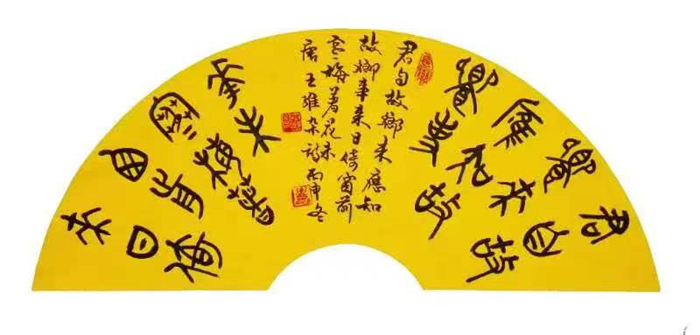 君自故
鄉來
應知故
鄉事
君自故鄉来應知
故鄉事来日倚窗前
寒梅著花未
唐王維杂詩丙申冬
來日綺
窗前
寒梅著
花未